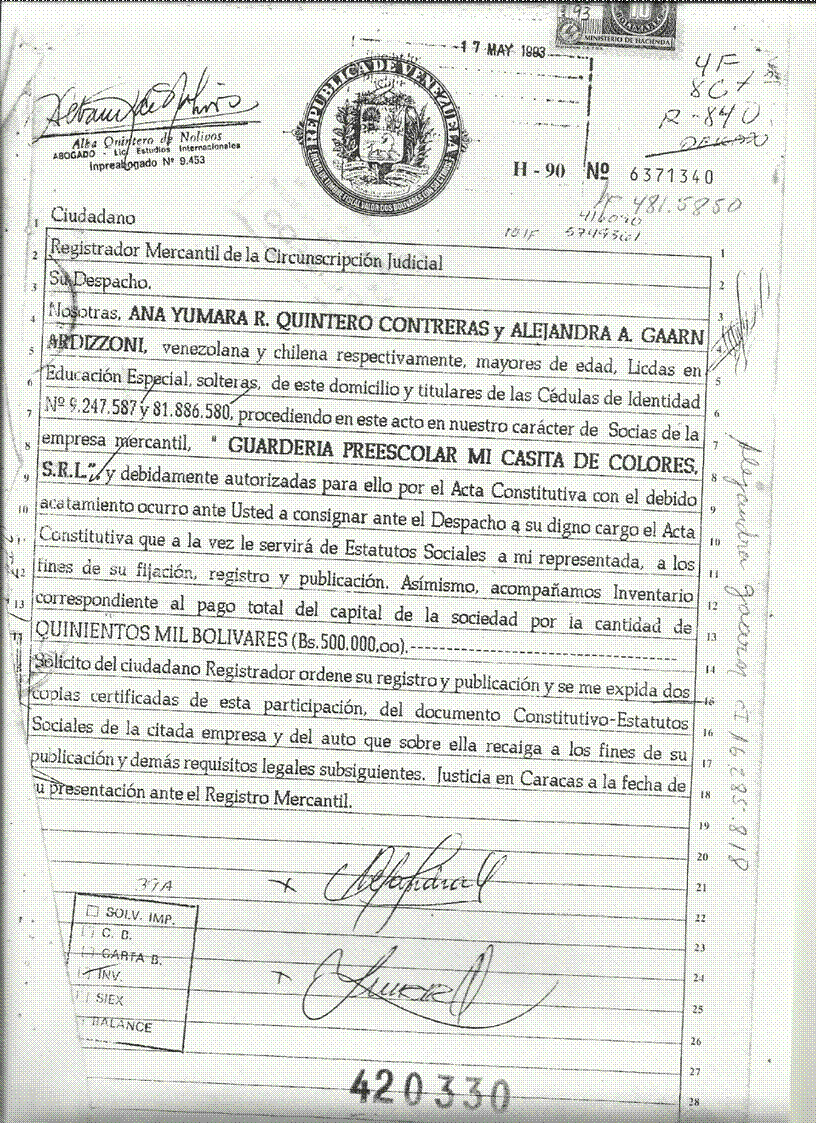 93
MINISTERIO DE HACIENDA
17 MAY 1993
REPUBLICA DE VENEZUELA
4F
8C+
R-840
Alba Quintero de Nolivos
ABOGADO - Lic. Estudios Internacionales
Inpreabogado Nº 9.453
H - 90 Nº 6371340
481.5850
1 Ciudadano 1
2 Registrador Mercantil de la Circunscripción Judicial 2
3 Su Despacho. 3
4 Nosotras, ANA YUMARA R. QUINTERO CONTRERAS y ALEJANDRA A. GAARN 4
5 ARDIZZONI, venezolana y chilena respectivamente, mayores de edad, Licdas en 5
6 Educación Especial, solteras, de este domicilio y titulares de las Cédulas de Identidad 6
7 Nº 9.247.587 y 81.886.580, procediendo en este acto en nuestro carácter de Socias de la 7
8 empresa mercantil, " GUARDERIA PREESCOLAR MI CASITA DE COLORES, 8
9 S.R.L", y debidamente autorizadas para ello por el Acta Constitutiva con el debido 9
10 acatamiento ocurro ante Usted a consignar ante el Despacho a su digno cargo el Acta 10
11 Constitutiva que a la vez le servirá de Estatutos Sociales a mi representada, a los 11
12 fines de su fijación, registro y publicación. Asímismo, acompañamos Inventario 12
13 correspondiente al pago total del capital de la sociedad por la cantidad de 13
QUINIENTOS MIL BOLIVARES (Bs.500.000,oo). 14
Solicito del ciudadano Registrador ordene su registro y publicación y se me expida dos 15
copias certificadas de esta participación, del documento Constitutivo-Estatutos 16
Sociales de la citada empresa y del auto que sobre ella recaiga a los fines de su 17
publicación y demás requisitos legales subsiguientes. Justicia en Caracas a la fecha de 18
su presentación ante el Registro Mercantil.
19
20
21
22
23
24
25
26
27
28
SOLV. IMP.
C. B.
CARTA B.
INV.
SIEX
BALANCE
420330
Alejandra Gaarn CI 16.285.818